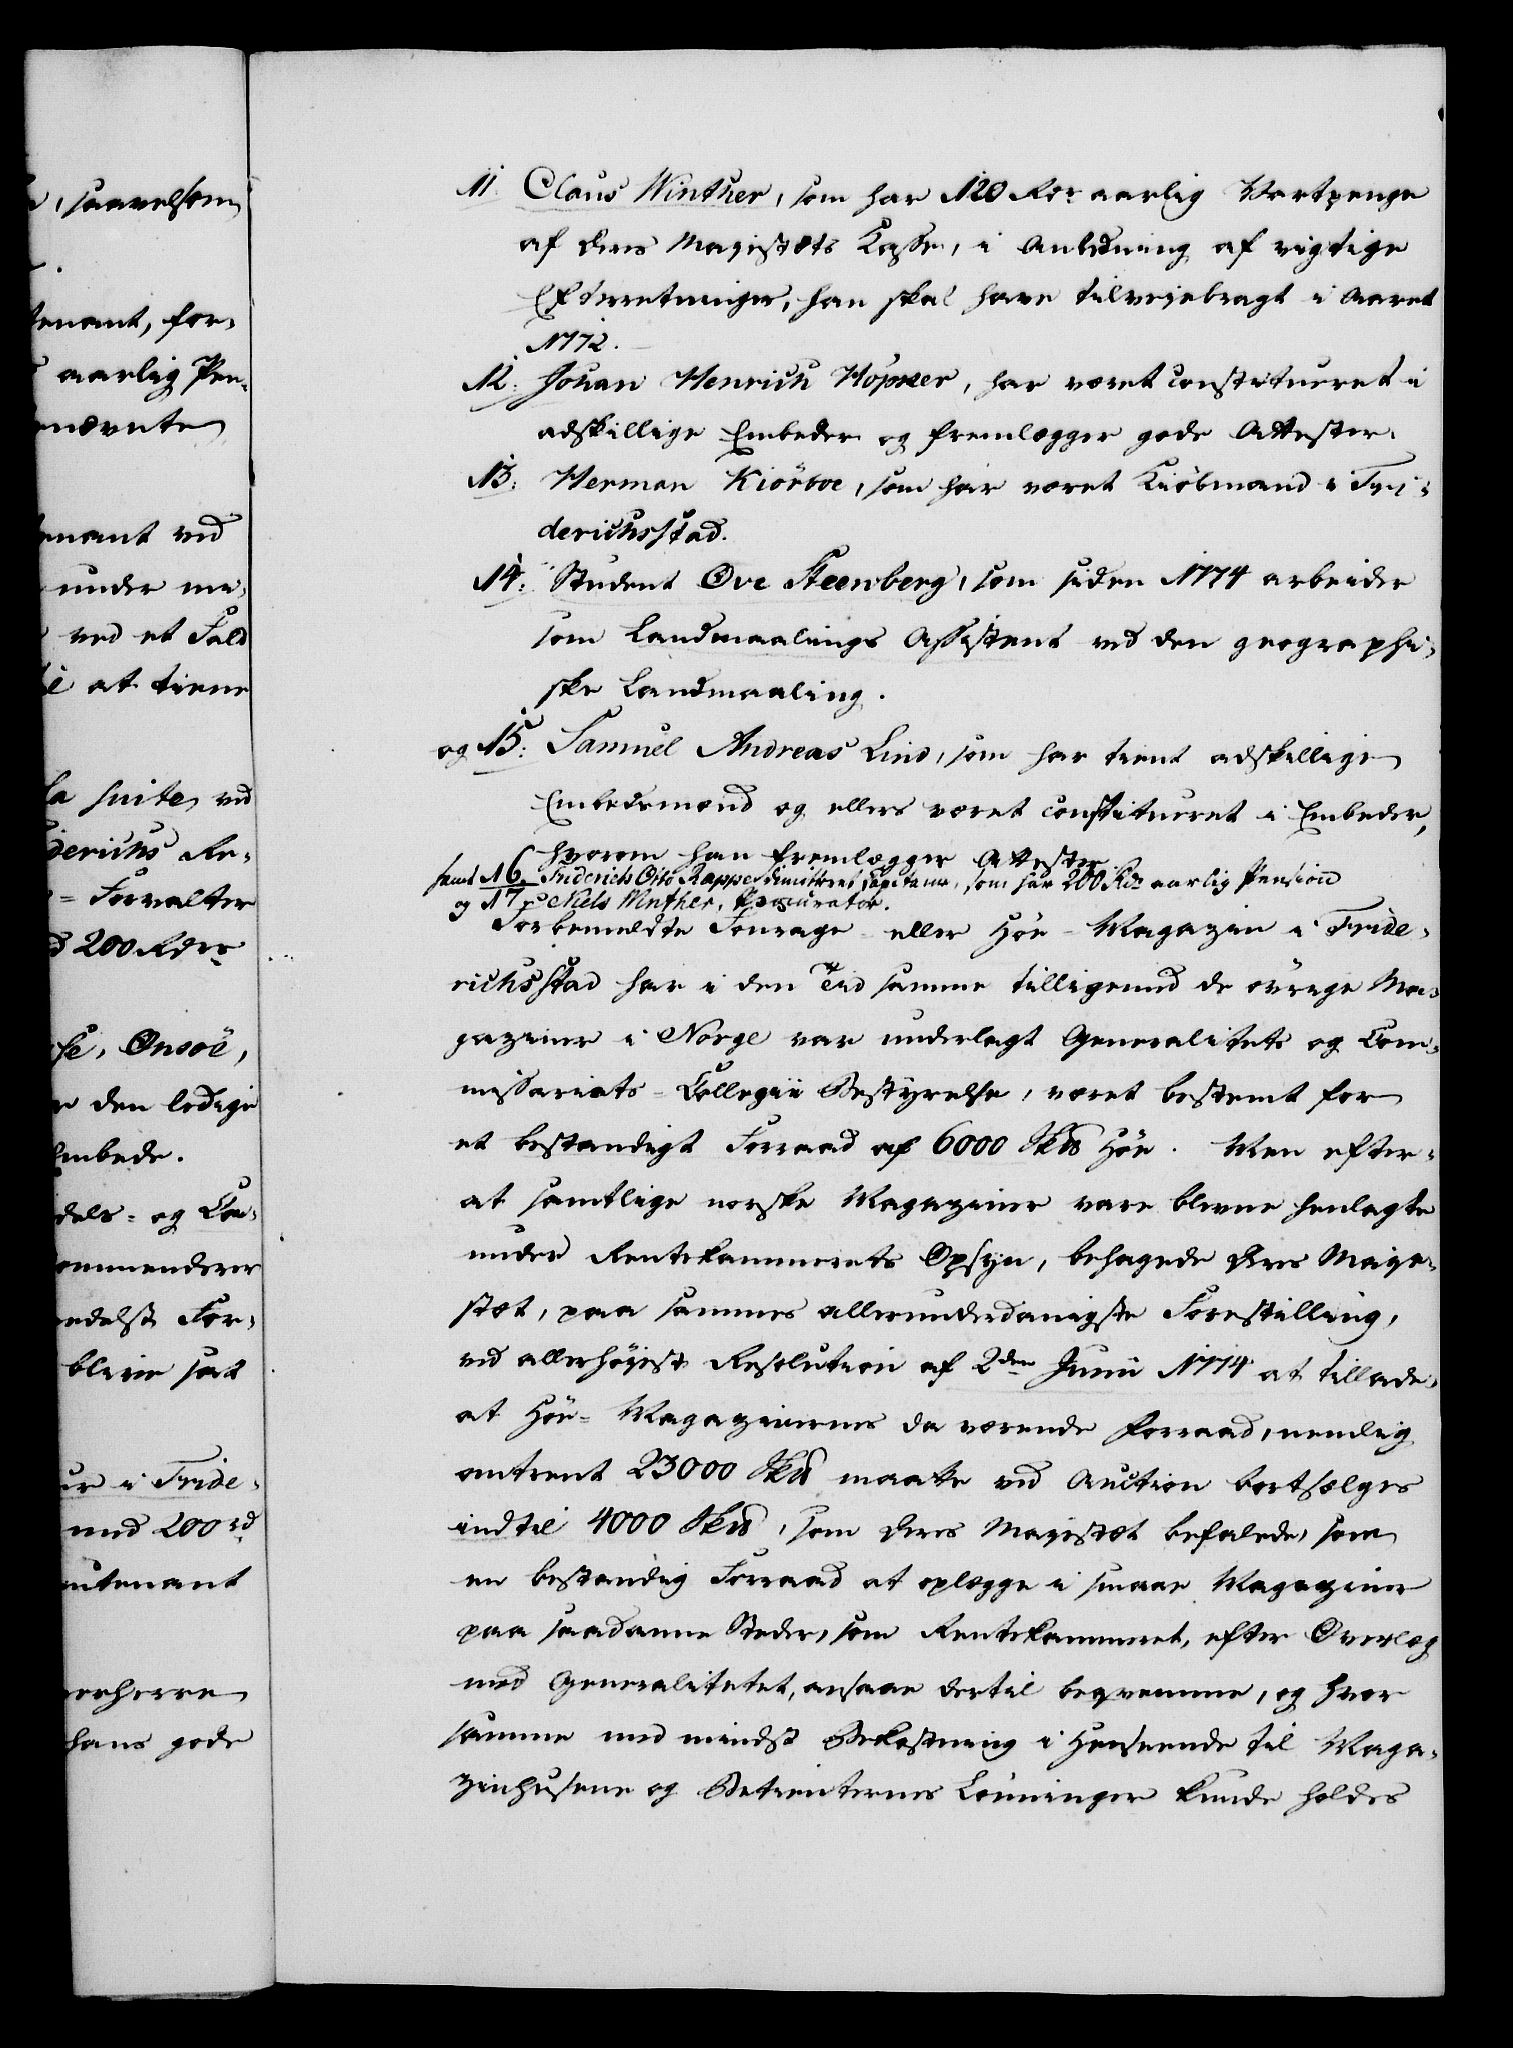 , saavelsom
tenant, for-
aarlig Pen-
nævnte
enant ved
under ma-
ved et Fald
at tiene
la suite ved
derichs Re-
= Forvalter
200 Rdrs
se, Onsøe,
den ledige
Embede.
dels- og Con-
ommenderer
edelst For-
blive sat
ur i Fride-
med 200 rd
utenant
herre
hans gode
11. Claus Winther, som har 120 Rdr aarlig Vartpenge
af Deres Majestæts Casse, i Anledning af vigtige
Efterretninger, han skal have tilveiebragt i Aaret
1772.
12. Johan Henrich Höpner, har været constitueret i
adskillige Embeder og fremlægger gode Attester.
13. Herman Kiörboe, som har været Kiöbmand i Fri-
derichsstad.
14. Student Ove Steenberg, som siden 1774 arbeider
som Landmaalings Assistent ved den geographi-
ske Landmaaling.
og 15. Samuel Andreas Lind, som har tient adskillige
Embedsmænd og ellers været constitueret i Embeder,
hvorom han fremlægger Attester.
samt 16 Friderich Otto Rappe dimitteret Capitaine, som har 200 Rdr aarlig Pension
og 17 Niels Winther, Procurator.
Forbemeldte Fourage- eller Höe-Magazin i Fride-
richsstad har i den Tid samme tilligemed de övrige Ma-
gaziner i Norge var underlagt Generalitets og Com-
missariats-Collegii Bestyrelse, været bestemt for
et bestandigt Forraad af 6000 Skt Höe. Men efter-
at samtlige norske Magaziner vare blevne henlagte
under Rentekammerets Opsyn, behagede Deres Maje-
stæt, paa sammes allerunderdanigste Forestilling,
ved allerhöjest Resolution af 2den Junii 1774 at tillade,
at Höe-Magazinernes da værende Forraad, nemlig
omtrent 23000 Skt maatte ved Auction bortsælges
indtil 4000 Skt, som Deres Majestæt befalede, som
en bestandig Forraad at oplægge i smaae Magaziner
paa saadanne Steder, som Rentekammeret, efter Overlæg
med Generalitetet, ansaae dertil beqvemme, og hvor
samme med mindst Bekostning i Henseende til Maga-
zinhusene og Betienternes Lönninger kunde holdes